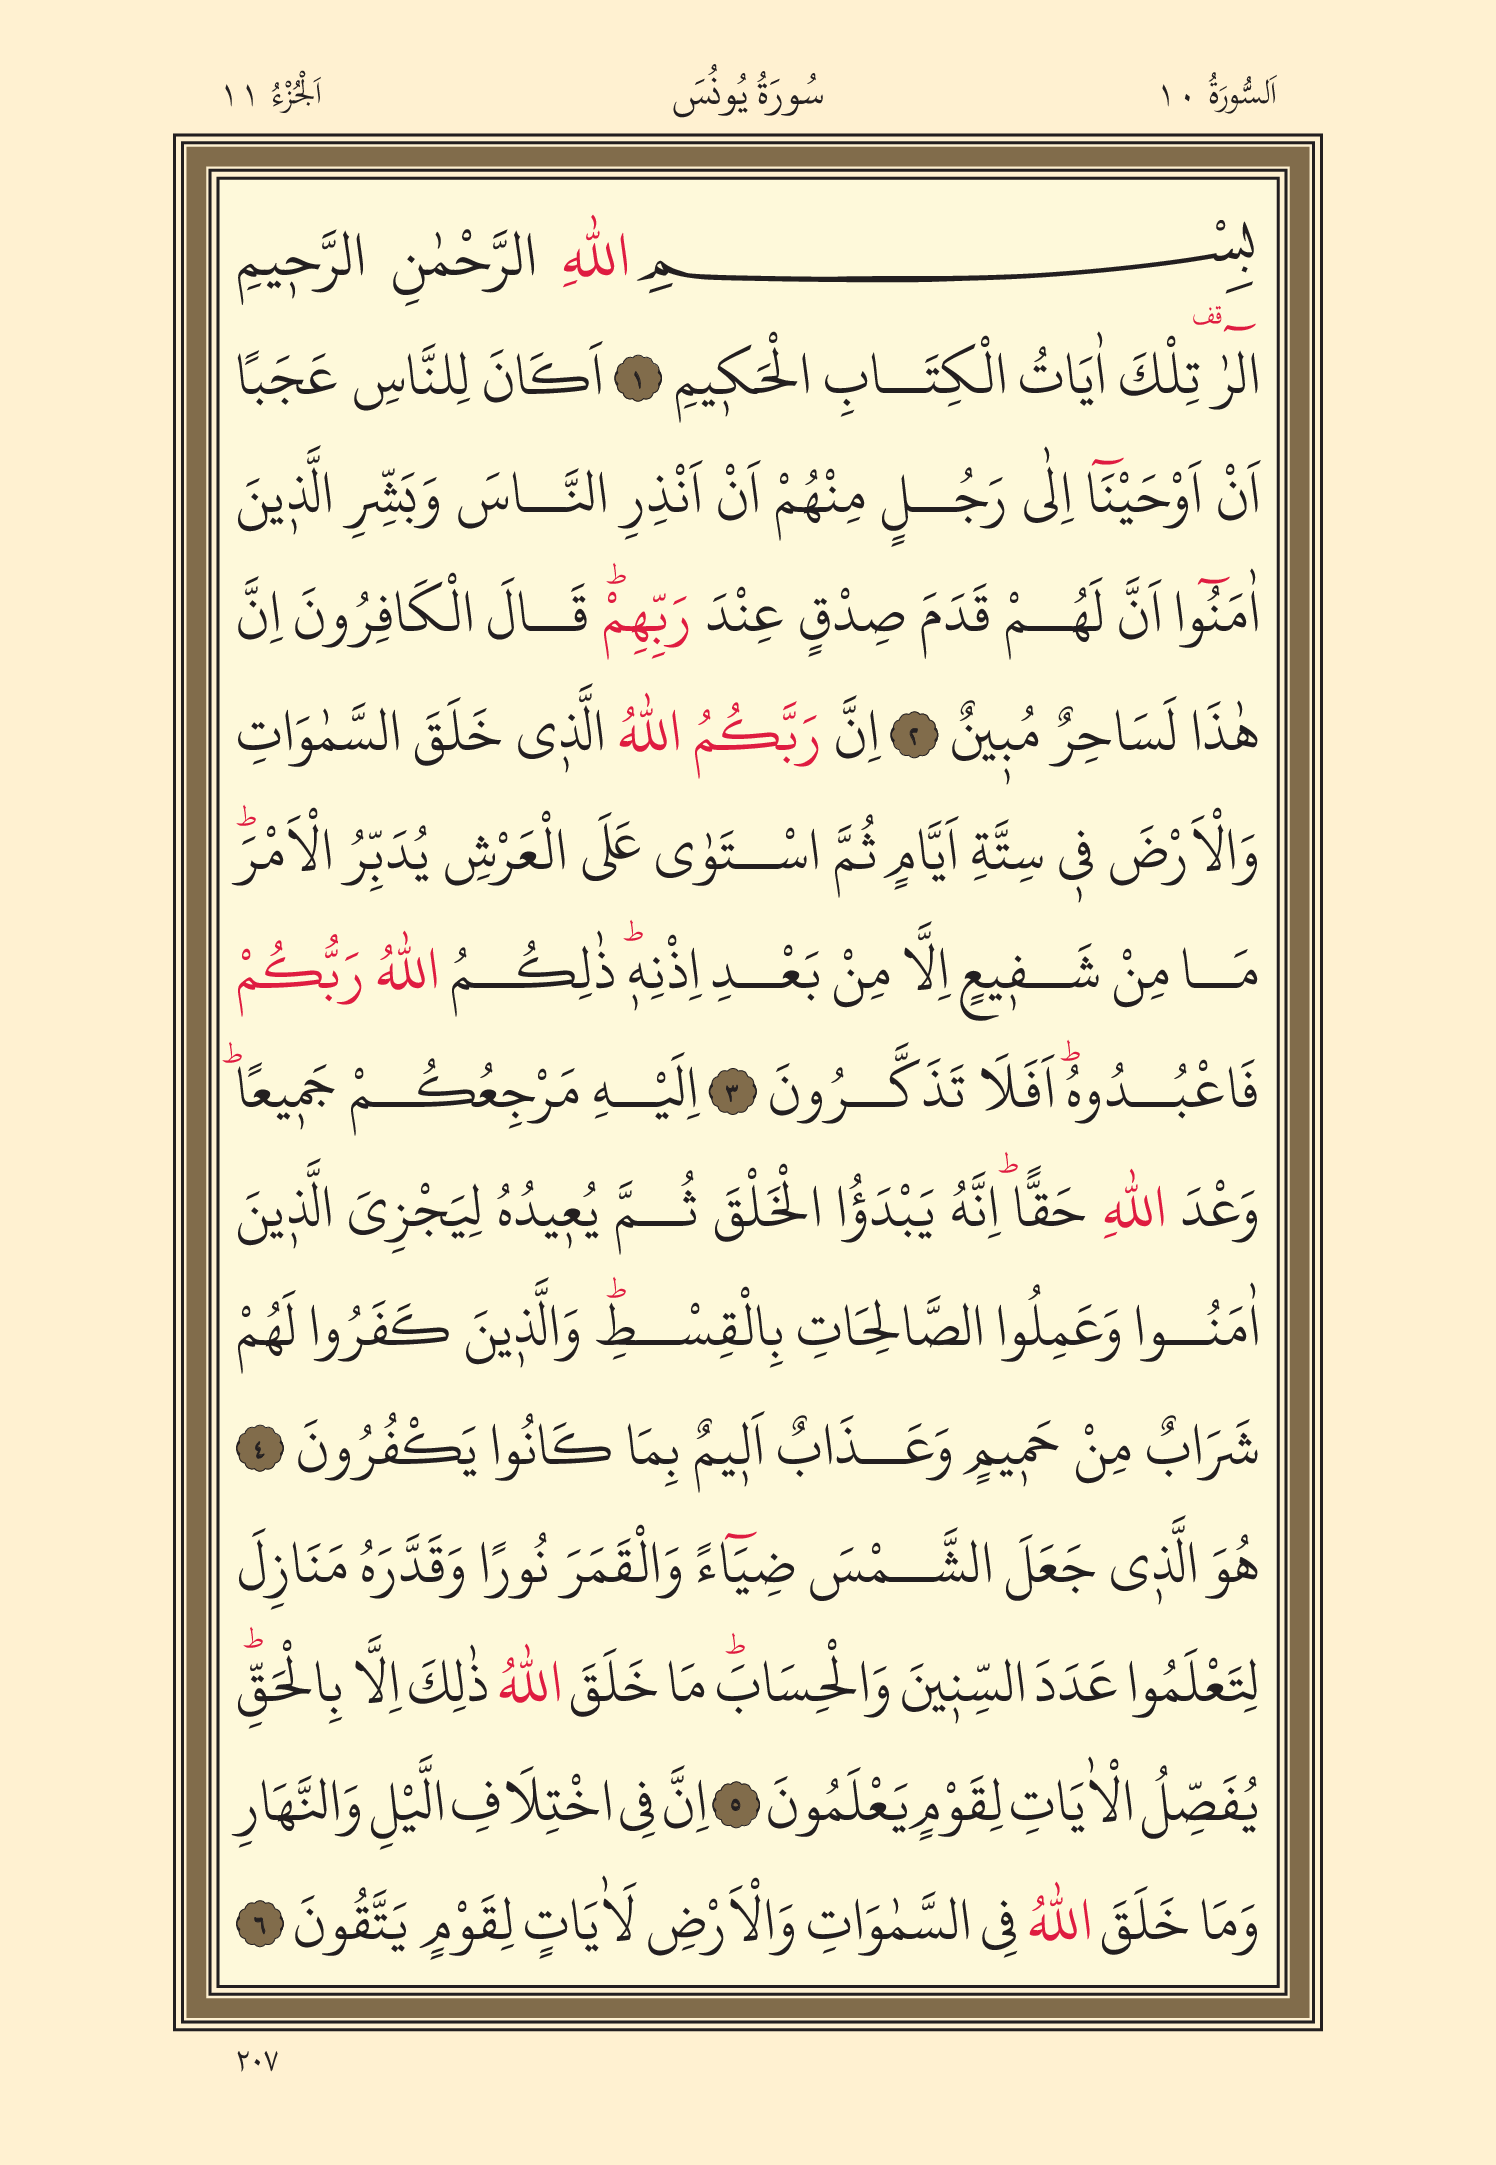 اَلسُّورَةُ ١٠ سُورَةُ يُونُسَ اَلْجُزْءُ ١١
بِسْمِ اللّٰهِ الرَّحْمٰنِ الرَّحٖيمِ
الٓرٰ ࣞقف تِلْكَ اٰيَاتُ الْكِتَابِ الْحَكٖيمِ ﴿١﴾ اَكَانَ لِلنَّاسِ عَجَبًا
اَنْ اَوْحَيْنَٓا اِلٰى رَجُلٍ مِنْهُمْ اَنْ اَنْذِرِ النَّاسَ وَبَشِّرِ الَّذٖينَ
اٰمَنُٓوا اَنَّ لَهُمْ قَدَمَ صِدْقٍ عِنْدَ رَبِّهِمْؕ قَالَ الْكَافِرُونَ اِنَّ
هٰذَا لَسَاحِرٌ مُبٖينٌ ﴿٢﴾ اِنَّ رَبَّكُمُ اللّٰهُ الَّذٖى خَلَقَ السَّمٰوَاتِ
وَالْاَرْضَ فٖى سِتَّةِ اَيَّامٍ ثُمَّ اسْتَوٰى عَلَى الْعَرْشِ يُدَبِّرُ الْاَمْرَؕ
مَا مِنْ شَفٖيعٍ اِلَّا مِنْ بَعْدِ اِذْنِهٖؕ ذٰلِكُمُ اللّٰهُ رَبُّكُمْ
فَاعْبُدُوهُؕ اَفَلَا تَذَكَّرُونَ ﴿٣﴾ اِلَيْهِ مَرْجِعُكُمْ جَمٖيعًاؕ
وَعْدَ اللّٰهِ حَقًّاؕ اِنَّهُ يَبْدَؤُا الْخَلْقَ ثُمَّ يُعٖيدُهُ لِيَجْزِىَ الَّذٖينَ
اٰمَنُوا وَعَمِلُوا الصَّالِحَاتِ بِالْقِسْطِؕ وَالَّذٖينَ كَفَرُوا لَهُمْ
شَرَابٌ مِنْ حَمٖيمٍ وَعَذَابٌ اَلٖيمٌ بِمَا كَانُوا يَكْفُرُونَ ﴿٤﴾
هُوَ الَّذٖى جَعَلَ الشَّمْسَ ضِيَٓاءً وَالْقَمَرَ نُورًا وَقَدَّرَهُ مَنَازِلَ
لِتَعْلَمُوا عَدَدَ السِّنٖينَ وَالْحِسَابَؕ مَا خَلَقَ اللّٰهُ ذٰلِكَ اِلَّا بِالْحَقِّؕ
يُفَصِّلُ الْاٰيَاتِ لِقَوْمٍ يَعْلَمُونَ ﴿٥﴾ اِنَّ فِى اخْتِلَافِ الَّيْلِ وَالنَّهَارِ
وَمَا خَلَقَ اللّٰهُ فِى السَّمٰوَاتِ وَالْاَرْضِ لَاٰيَاتٍ لِقَوْمٍ يَتَّقُونَ ﴿٦﴾
٢٠٧